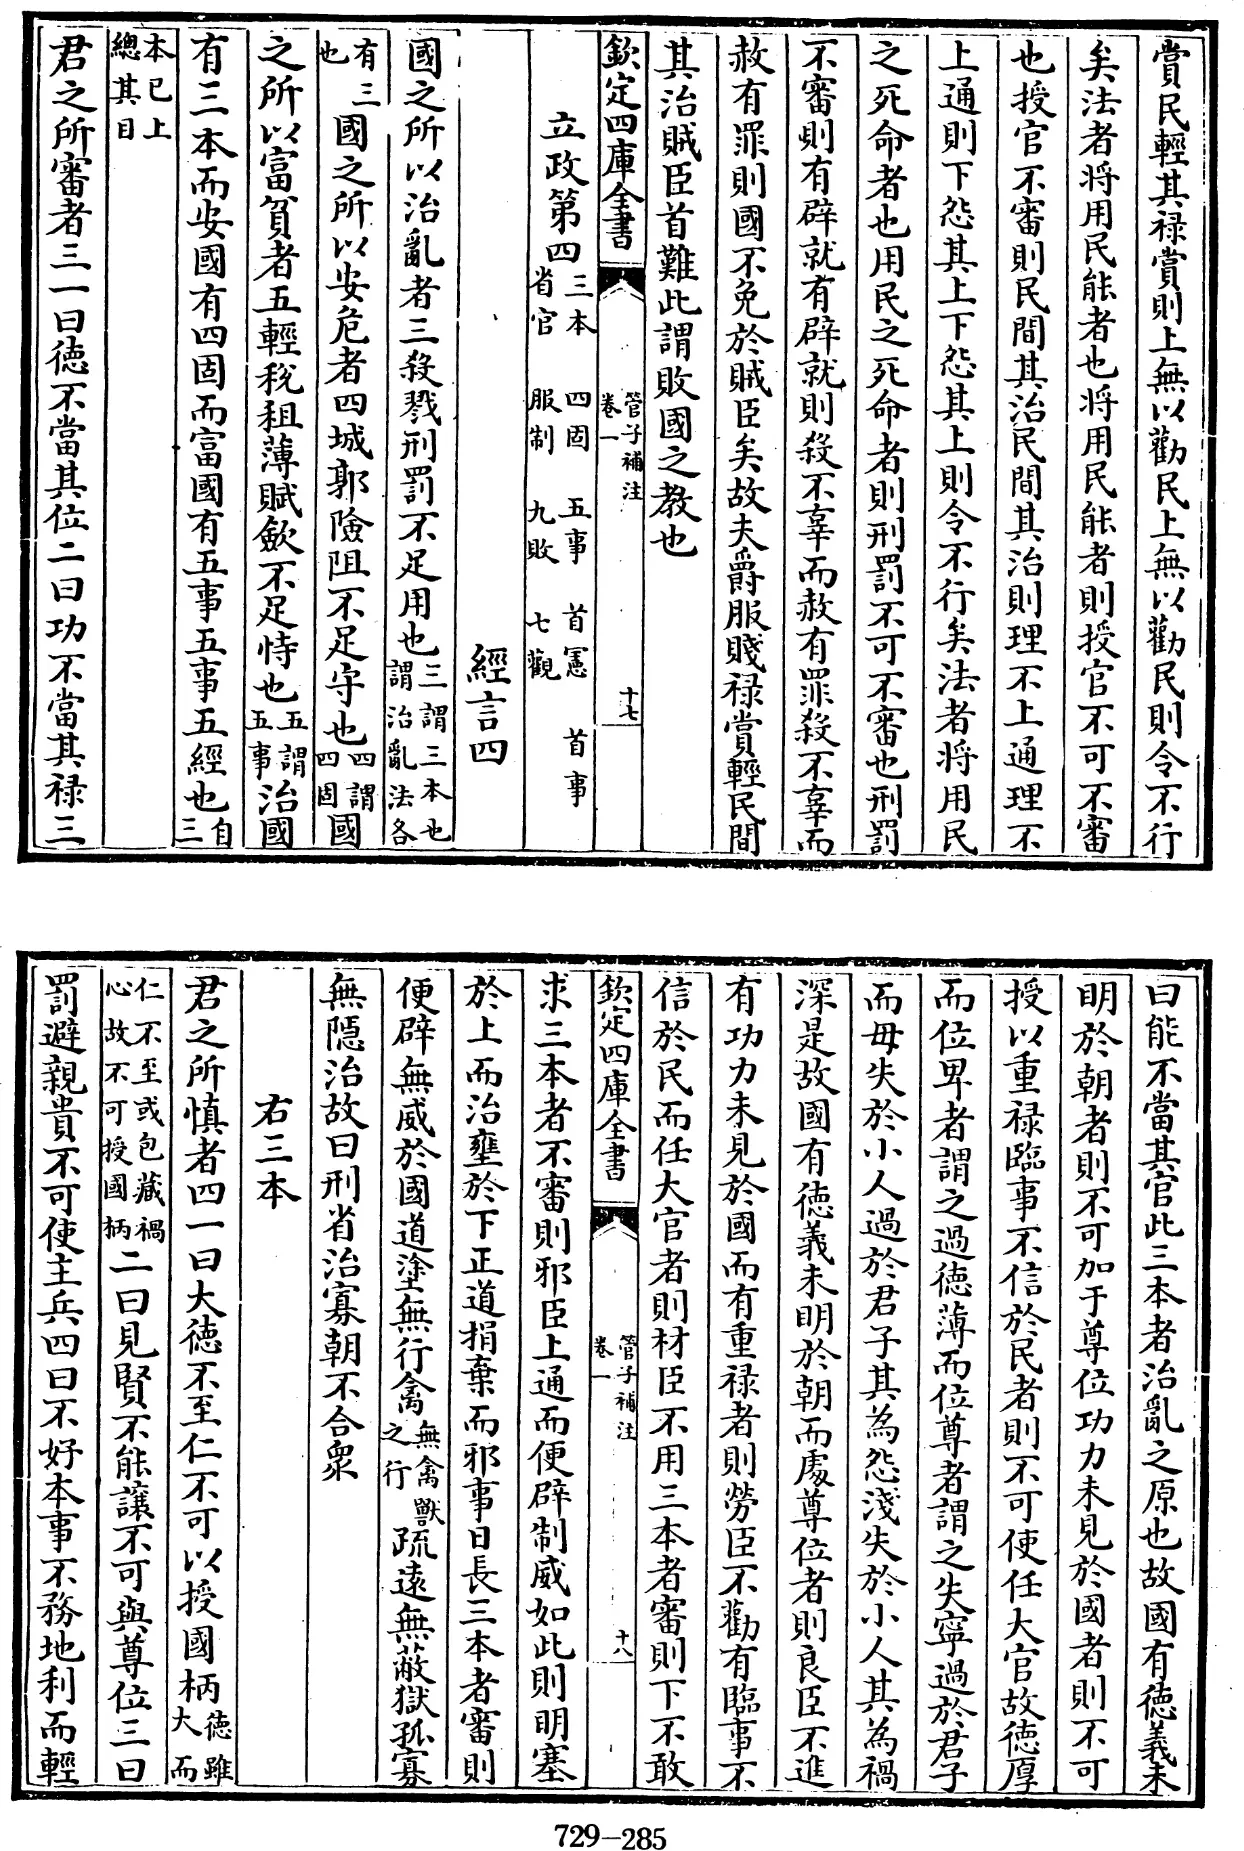 賞民輕其祿賞則上無以勸民上無以勸民則令不行
矣法者將用民能者也將用民能者則授官不可不審
也授官不審則民間其治民間其治則理不上通理不
上通則下怨其上下怨其上則令不行矣法者將用民
之死命者也用民之死命者則刑罰不可不審也刑罰
不審則有辟就有辟就則殺不辜而赦有罪殺不辜而
赦有罪則國不免於賊臣矣故夫爵服賤祿賞輕民間
其治賊臣首難此謂敗國之教也
欽定四庫全書
管子補注
卷一
十七
立政第四
三本 四固 五事 首憲 首事
省官 服制 九敗 七觀
經言四
國之所以治亂者三殺戮刑罰不足用也三謂三本也
謂治亂法各
有三
也國之所以安危者四城郭險阻不足守也四謂
四固國
之所以富貧者五輕稅租薄賦歛不足恃也五謂
五事治國
有三本而安國有四固而富國有五事五事五經也自
三
本已上
總其目
君之所審者三一曰德不當其位二曰功不當其祿三
曰能不當其官此三本者治亂之原也故國有德義未
明於朝者則不可加于尊位功力未見於國者則不可
授以重祿臨事不信於民者則不可使任大官故德厚
而位卑者謂之過德薄而位尊者謂之失寧過於君子
而毋失於小人過於君子其為怨淺失於小人其為禍
深是故國有德義未明於朝而處尊位者則良臣不進
有功力未見於國而有重祿者則勞臣不勸有臨事不
信於民而任大官者則材臣不用三本者審則下不敢
欽定四庫全書
管子補注
卷一
十八
求三本者不審則邪臣上通而便辟制威如此則明塞
於上而治壅於下正道捐棄而邪事日長三本者審則
便辟無威於國道塗無行禽無禽獸
之行疏遠無蔽獄孤寡
無隱治故曰刑省治寡朝不合衆
右三本
君之所慎者四一曰大德不至仁不可以授國柄德雖
大而
仁不至或包藏禍
心故不可授國柄二曰見賢不能讓不可與尊位三曰
罰避親貴不可使主兵四曰不好本事不務地利而輕
729-285